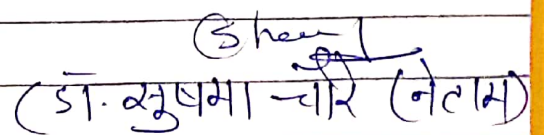 (डॉ. सुषमा चौरे (नेताम)